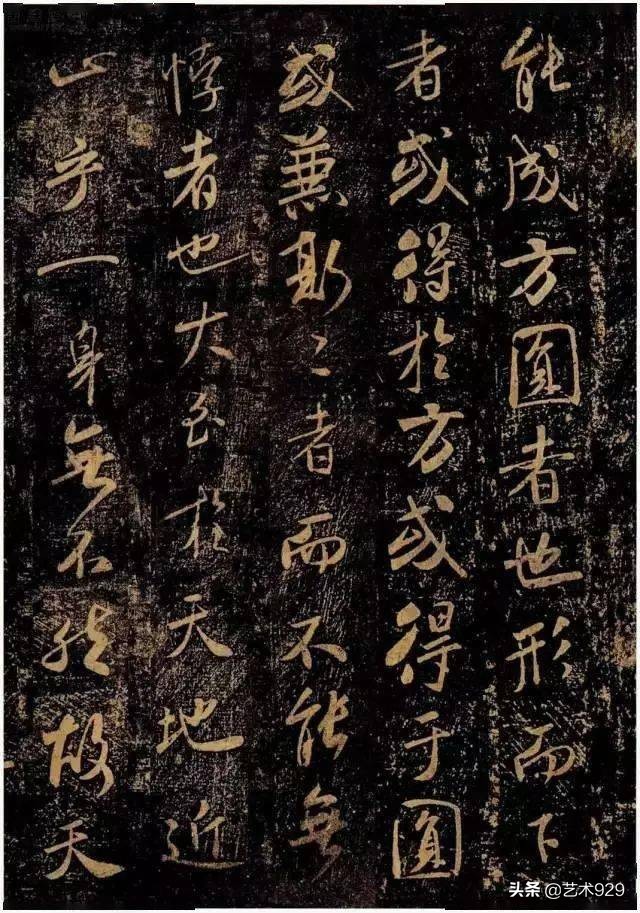 能成方圓者也形而下
者或得於方或得于圓
或兼斯二者而不能無
悖者也大至於天地近
止乎一身無不然故天
头条@艺术929